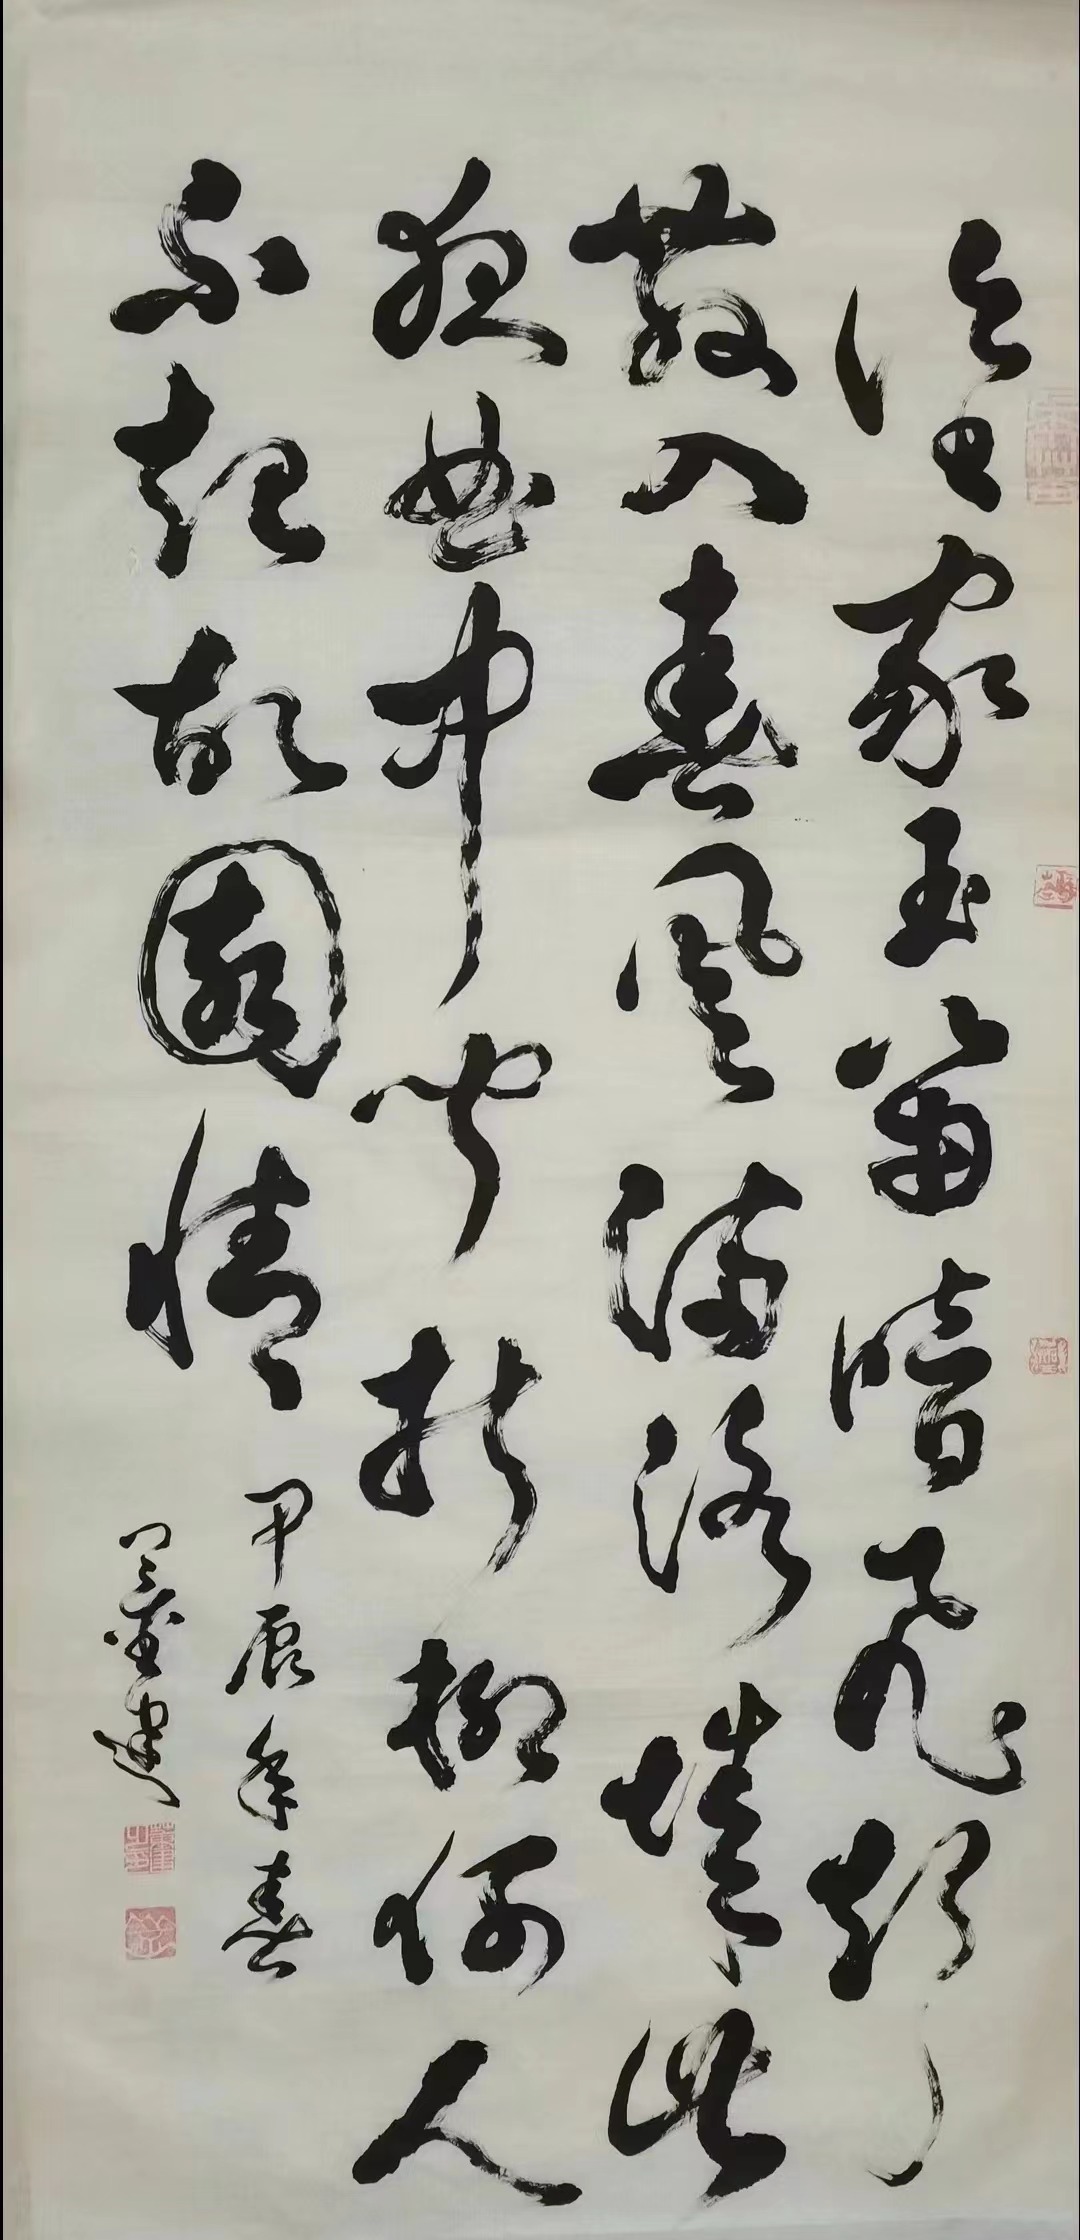 谁家玉笛暗飞声
散入春风满洛城此
夜曲中闻折柳何人
不起故园情
甲辰年春